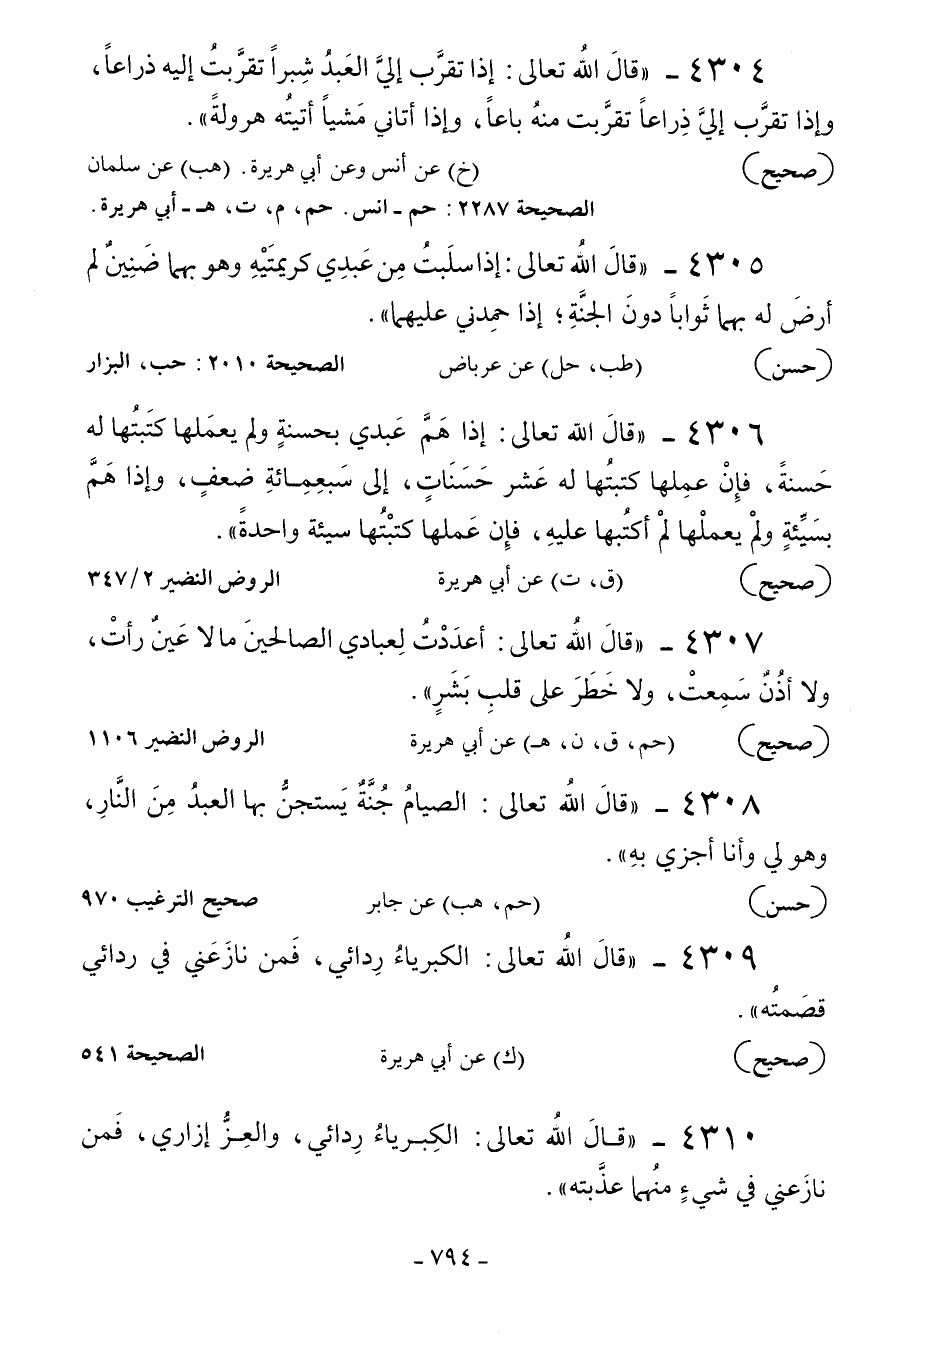 ٤٣٠٤ ـ «قالَ اللهُ تعالى: إذا تقرَّب إليَّ العَبدُ شِبراً تقرَّبتُ إليه ذراعاً،
وإذا تقرَّب إليَّ ذِراعاً تقرَّبت منهُ باعاً، وإذا أتاني مَشياً أتيتُه هرولةً».
(صحيح) (خ) عن أنس وعن أبي هريرة. (هب) عن سلمان
الصحيحة ٢٢٨٧: حم ـ انس. حم، م، ت، هـ ـ أبي هريرة.
٤٣٠٥ ـ «قالَ اللهُ تعالى: إذا سلَبتُ مِن عَبدِي كريمتَيْهِ وهو بهما ضَنِينٌ لم
أرضَ له بهما ثَواباً دونَ الجنَّةِ؛ إذا حمِدني عليهما».
(حسن) (طب، حل) عن عرباض الصحيحة ٢٠١٠: حب، البزار
٤٣٠٦ ـ «قالَ الله تعالى: إذا هَمَّ عَبدي بحسنةٍ ولم يعمَلها كتَبتُها له
حَسنةً، فإِنْ عمِلها كتبتُها له عَشر حَسَنَاتٍ، إلى سَبعِمِـائةِ ضعفٍ، وإذا هَمَّ
بسَيِّئةٍ ولمْ يعملْها لمْ أكتُبها عليهِ، فإِن عَملها كتبْتُها سيئة واحدةً».
(صحيح) (ق، ت) عن أبي هريرة الروض النضير ٣٤٧/٢
٤٣٠٧ ـ «قالَ اللهُ تعالى: أعدَدْتُ لِعبادي الصالحينَ مالا عَينٌ رأتْ،
ولا أذُنٌ سَمِعتْ، ولا خَطَرَ على قلبِ بَشَرٍ».
(صحيح) (حم، ق، ن، هـ) عن أبي هريرة الروض النضير ١١٠٦
٤٣٠٨ ـ «قالَ اللهُ تعالى: الصيامُ جُنَّةٌ يَستجنُّ بها العبدُ مِنَ النَّارِ،
وهو لي وأنا أجزي بهِ».
(حسن) (حم، هب) عن جابر صحيح الترغيب ٩٧٠
٤٣٠٩ ـ «قالَ اللهُ تعالى: الكبرياءُ رِدائي، فَمن نازَعَني في ردائي
قصَمتُه».
(صحيح) (ك) عن أبي هريرة الصحيحة ٥٤١
٤٣١٠ ـ «قـالَ اللهُ تعالى: الكِبـرياءُ رِدائي، والعِـزُّ إزاري، فَمن
نازَعني في شيءٍ منُهما عذَّبته».
ـ ٧٩٤ ـ